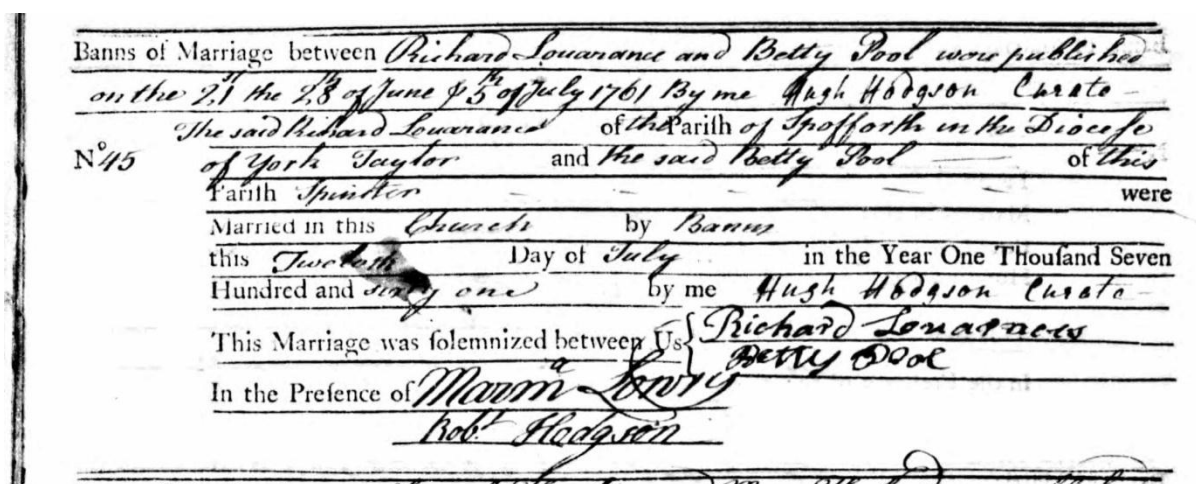 Banns of Marriage between Richard Louarance and Betty Pool were published
on the 21st the 28 of June & 5th of July 1761 By me Hugh Hodgson Curate
The said Richard Louarance of the Parish of Spofforth in the Diocese
No 45 of York Taylor and the said Betty Pool of this
Parish Spinster were
Married in this Church by Banns
this Twelfth Day of July in the Year One Thousand Seven
Hundred and sixty one by me Hugh Hodgson Curate
This Marriage was solemnized between Us Richard Louarnces
Betty Pool
In the Presence of Marma Lowry
Robt Hodgson